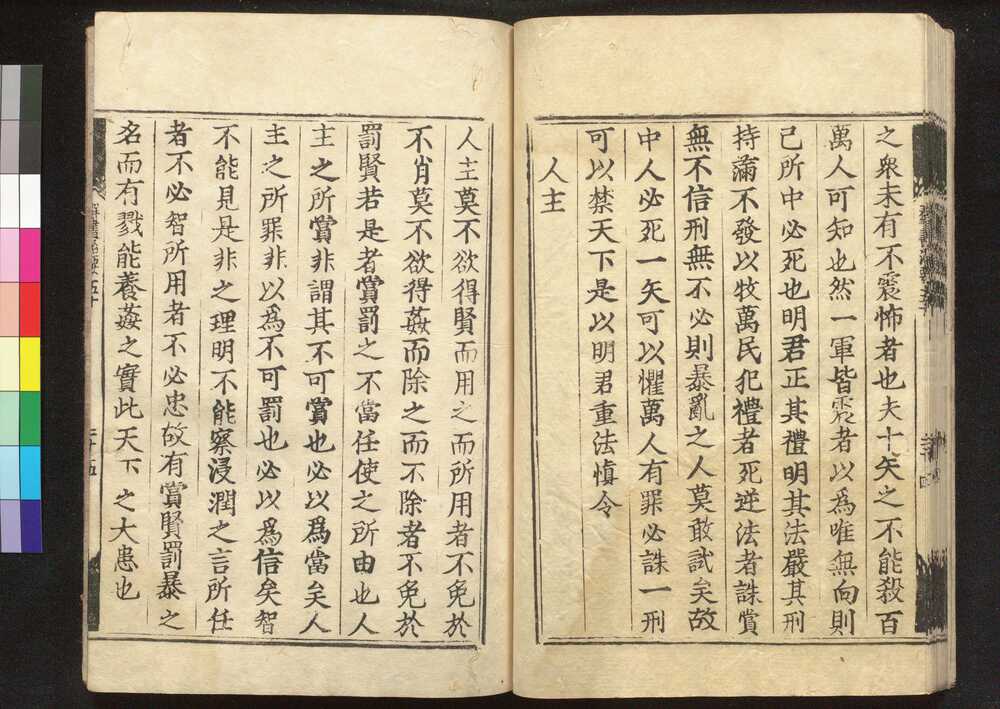 之衆未有不震怖者也夫十矢之不能殺百
萬人可知也然一軍皆震者以爲唯無向則
已所中必死也明君正其禮明其法嚴其刑
持滿不發以牧萬民犯禮者死逆法者誅賞
無不信刑無不必則暴亂之人莫敢試矣故
中人必死一矢可以懼萬人有罪必誅一刑
可以禁天下是以明君重法愼令
人主
人主莫不欲得賢而用之而所用者不免於
不肖莫不欲得姦而除之而不除者不免於
罰賢若是者賞罰之不當任使之所由也人
主之所賞非謂其不可賞也必以爲當矣人
主之所罪非以爲不可罰也必以爲信矣智
不能見是非之理明不能察浸潤之言所任
者不必智所用者不必忠故有賞賢罰暴之
名而有戮能養姦之實此天下之大患也
羣書治要五十
三十五